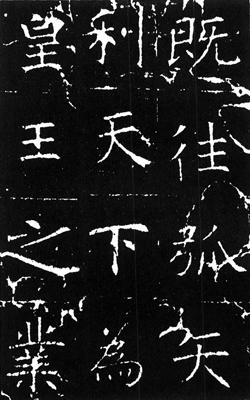 既往弧矢
利天下為
皇王之業